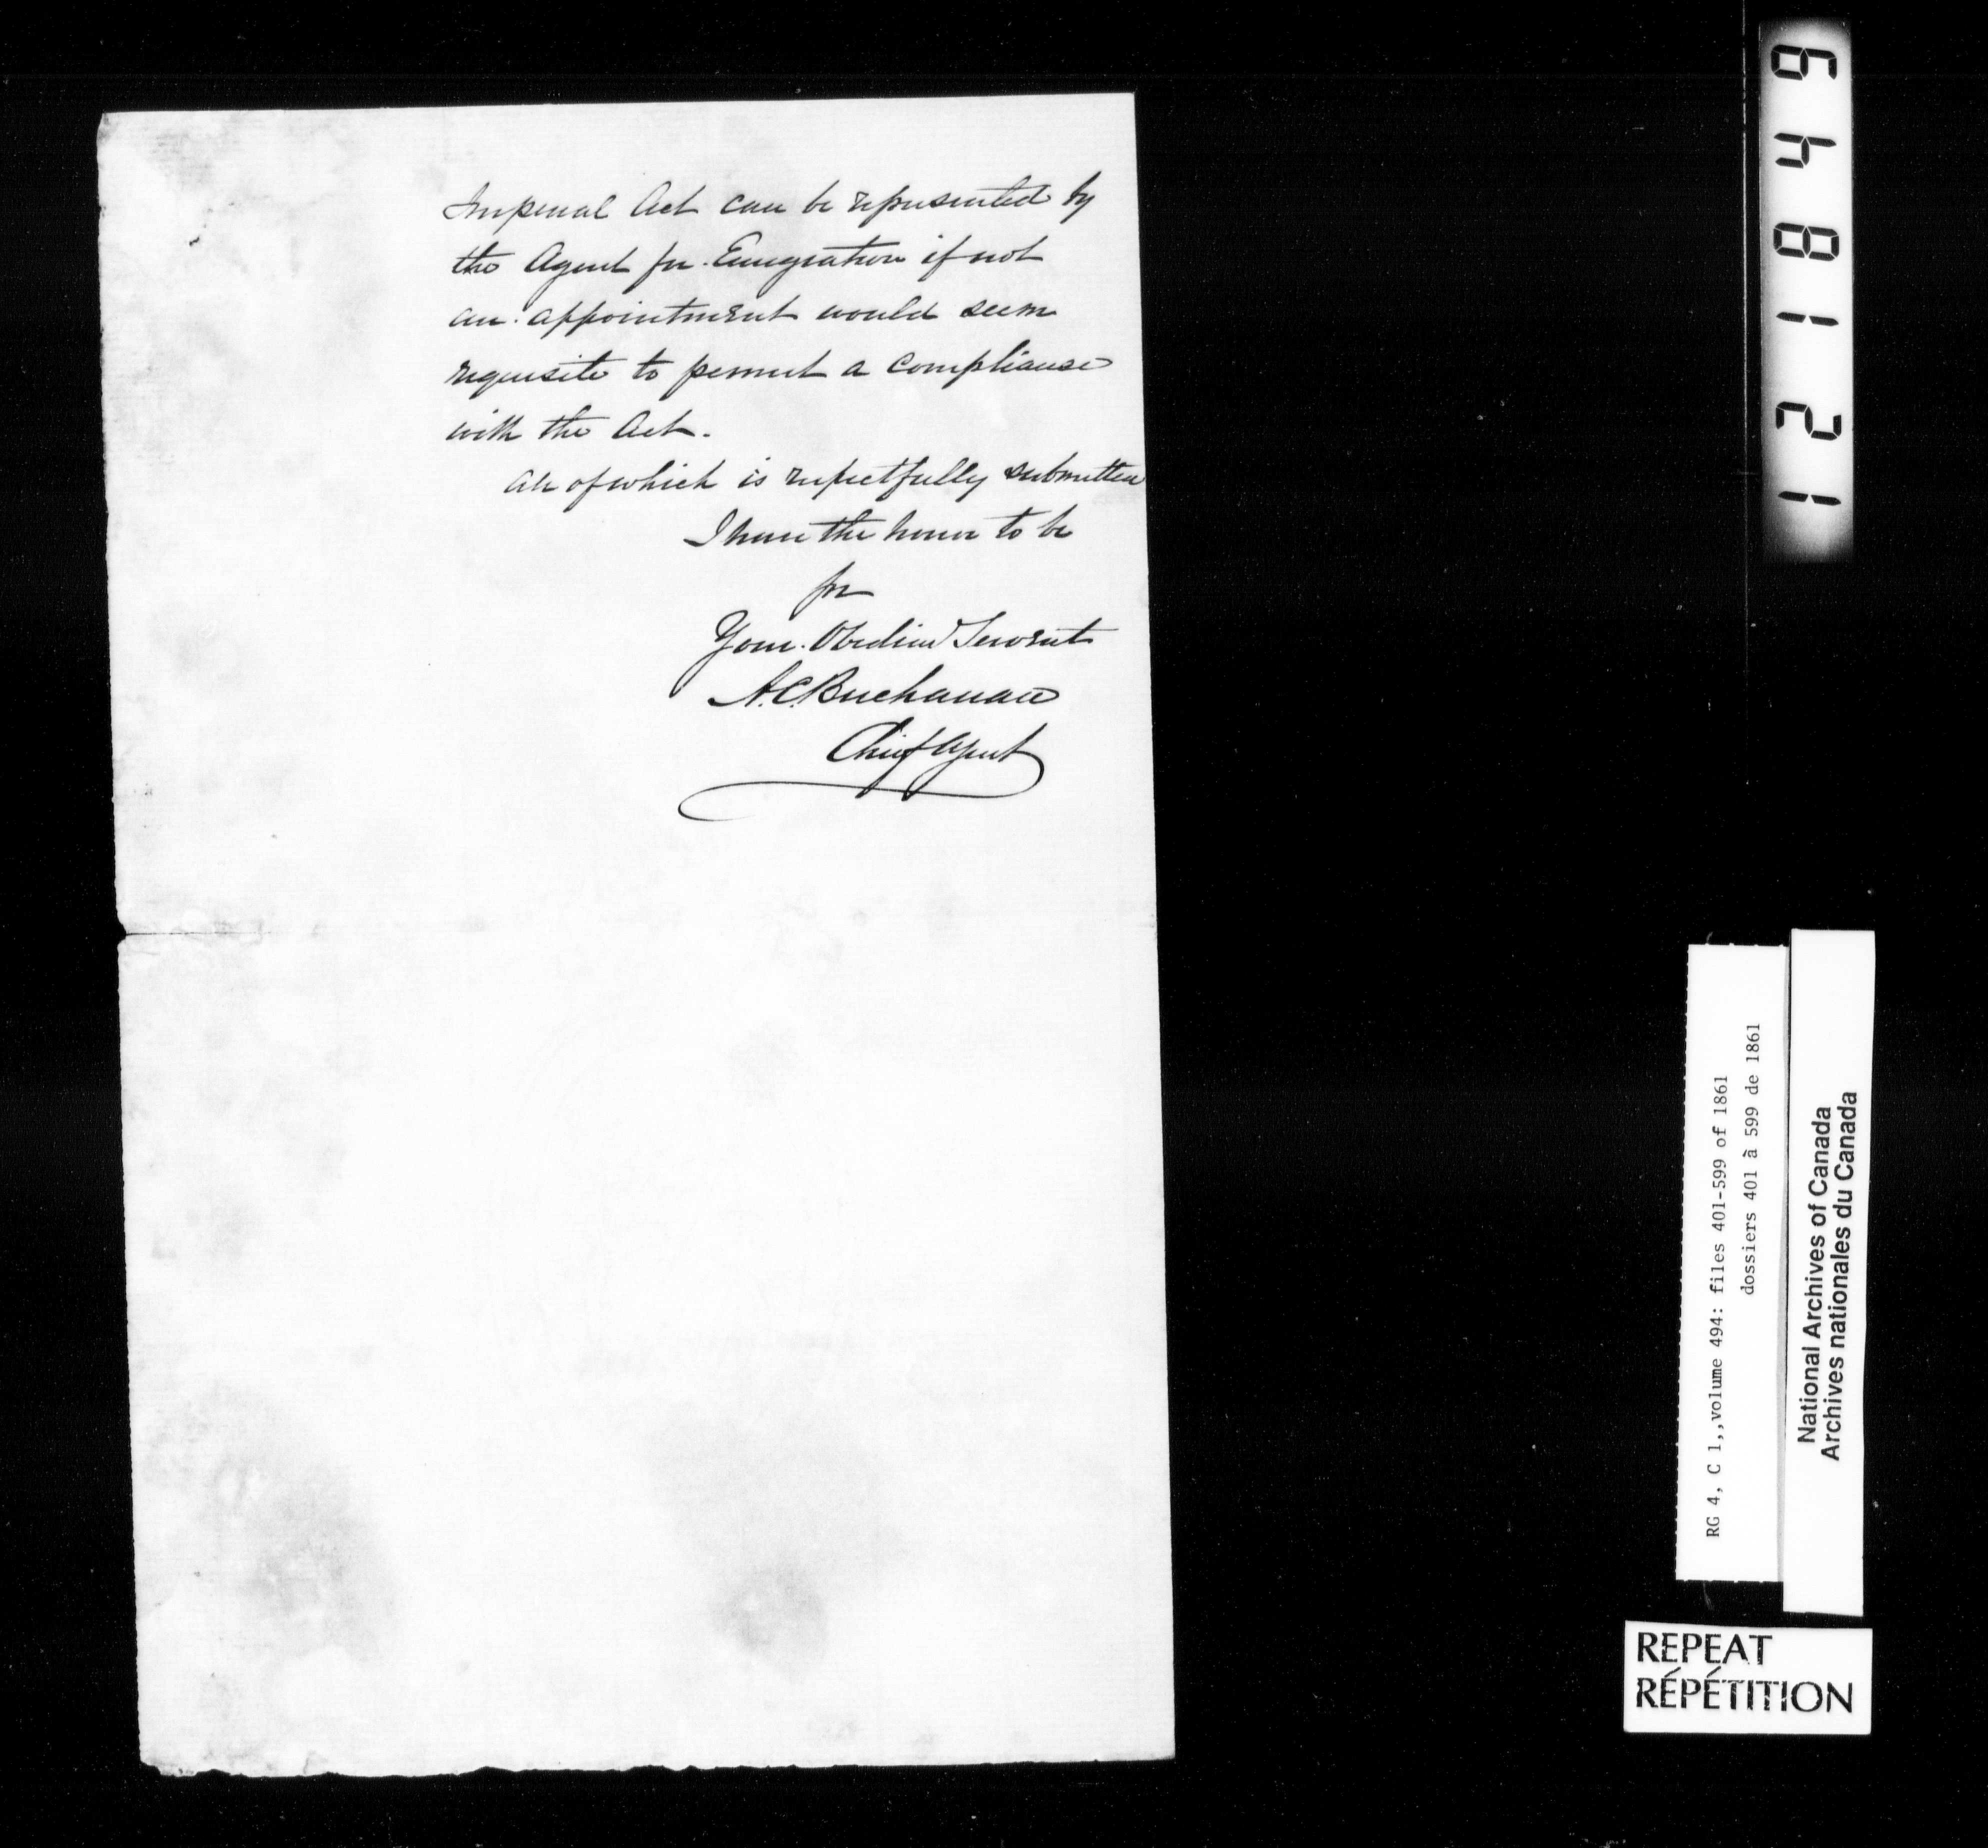 Imperial Act can be represented by
the Agent for Emigration if not
an appointment would seem
requisite to permit a compliance
with the Act.
All of which is respectfully submitted
I have the honor to be
Your Obedient Servant
A.C. Buchanan
Chief Agent
121849
RG 4, C 1,,volume 494: files 401-599 of 1861
dossiers 401 à 599 de 1861
National Archives of Canada
Archives nationales du Canada
REPEAT
RÉPÉTITION